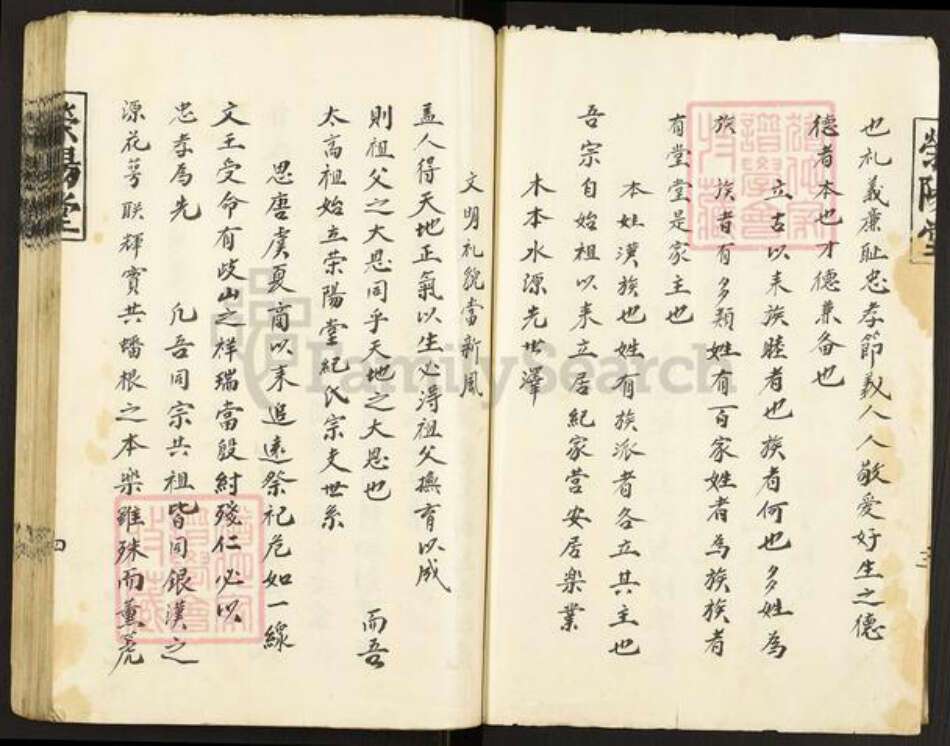 荣陽堂
也礼義廉耻忠孝節義人人敬爱好生之德
德者本也才德兼备也
立古以来族睦者也族者何也多姓為
族 族者有多類姓有百家姓者為族族者
有堂堂是家主也
本姓漢族也姓有族派者各立其主也
吾宗自始祖以来立居紀家营安居楽業
木本水源先世澤
三
文明礼貌當新風
盖人得天地正氣以生必得祖父撫育以成
則祖父之大恩同乎天地之大恩也 而吾
太高祖始立荣陽堂紀氏宗支世系
思唐虞夏商以来追遠祭祀危如一線
文王受命有歧山之祥瑞當殷紂殘仁必以
忠孝為先 凡吾同宗共祖皆同銀漢之
源花萼联輝實共蟠根之本柴雖殊而薫蕘
荣陽堂
四
FamilySearch